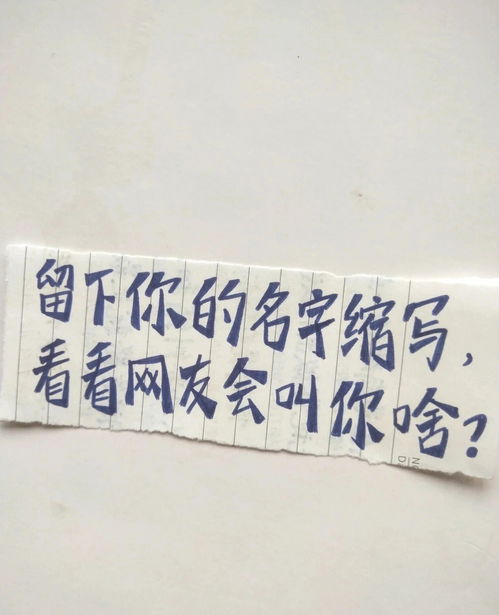 留下你的名字缩写,
看看网友会叫你啥?